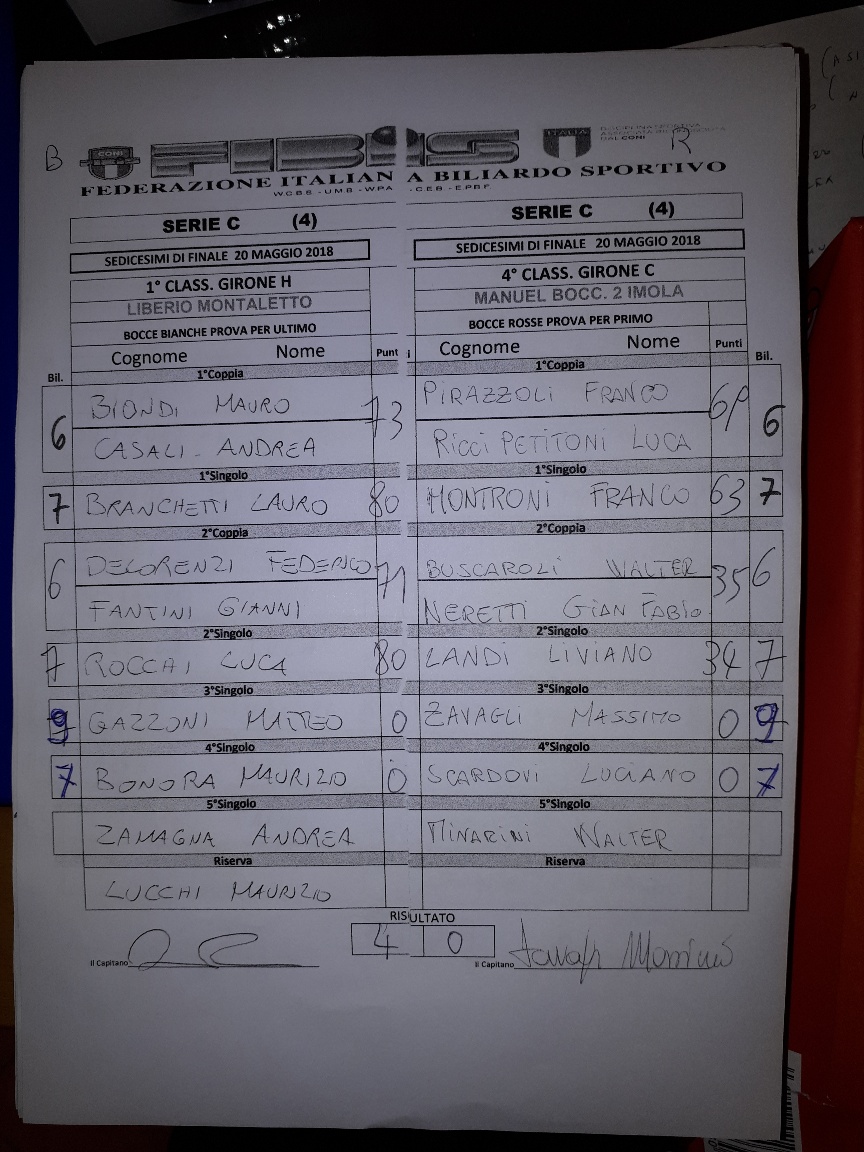 B
CONI
FIBiS
ITALIA
DISCIPLINA SPORTIVA
DAL CONI
R
FEDERAZIONE ITALIAN A BILIARDO SPORTIVO
W.C.B.S - U.M.B - W.P.A - C.E.B - E.P.B.F
SERIE C (4)
SEDICESIMI DI FINALE 20 MAGGIO 2018
1° CLASS. GIRONE H
LIBERIO MONTALETTO
BOCCE BIANCHE PROVA PER ULTIMO
Cognome Nome Punt
Bil.
1°Coppia
BIONDI MAURO
6 73
CASALI ANDREA
1°Singolo
7 BRANCHETTI LAURO 80
2°Coppia
DELORENZI FEDERICO
6 71
FANTINI GIANNI
2°Singolo
7 ROCCHI LUCA 80
3°Singolo
9 GAZZONI MATTEO 0
4°Singolo
7 BONORA MAURIZIO 0
5°Singolo
ZAMAGNA ANDREA
Riserva
LUCCHI MAURIZIO
SERIE C (4)
SEDICESIMI DI FINALE 20 MAGGIO 2018
4° CLASS. GIRONE C
MANUEL BOCC. 2 IMOLA
BOCCE ROSSE PROVA PER PRIMO
i Cognome Nome Punti
Bil.
1°Coppia
PIRAZZOLI FRANCO
6
RICCI PETITONI LUCA
1°Singolo
MONTRONI FRANCO 63 7
2°Coppia
BUSCAROLI WALTER
35 6
NERETTI GIAN FABIO
2°Singolo
LANDI LIVIANO 34 7
3°Singolo
ZAVAGLI MASSIMO 0 9
4°Singolo
SCARDOVI LUCIANO 0 7
5°Singolo
MINARINI WALTER
Riserva
RISULTATO
4 0
Il Capitano
Il Capitano